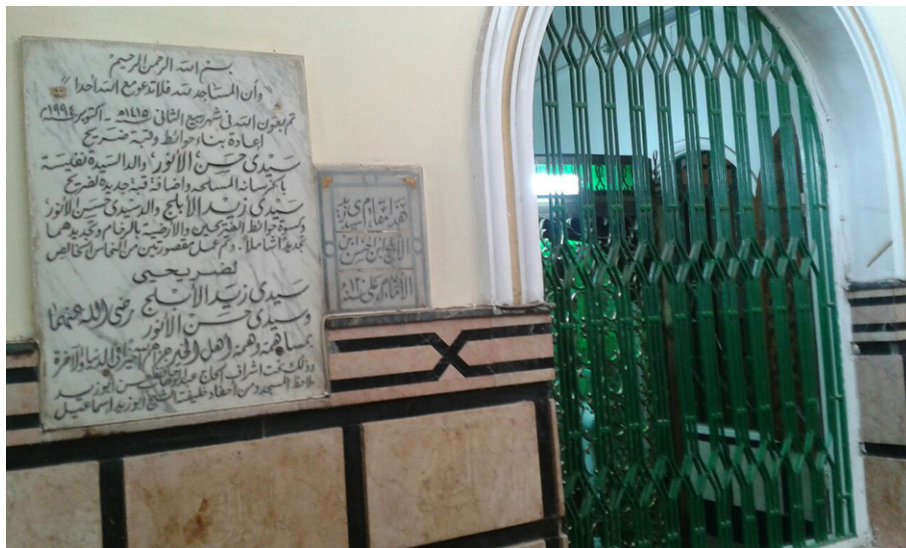 بسم الله الرحمن الرحيم
"وأن المساجد لله فلا تدعو مع الله أحدا"
تم بعون الله فى شهر ربيع الثانى ١٤١٥هـ - أكتوبر ١٩٩٤م
إعادة بناء حوائط وقبة ضريح
سيدى حسن الأنور، والد السيدة نفيسة
بالخرسانة المسلحة وإضافة قبة جديدة لضريح
سيدى زيد الأبلج والد سيدى حسن الأنور،
وكسوة حوائط الضريحين والأرضية بالرخام وتجديدهما
تجديداً شاملاً. وتم عمل مقصورتين من النحاس الخالص
لضريحى
سيدى زيد الأبلج
وسيدى حسن الأنور رضى الله عنهما
بمساهمة وهمة أهل الخير جزاهم الله خيرا فى الدنيا والآخرة
وذلك تحت اشراف الحاج حسن أبو زيد
ملاحظ المسجد ومن أحفاد خليفة الشيخ أبو زيد إسماعيل
هذا مقام سيدى زيد
الأبلج ابن الحسن ابن
الإمام على سنة ١٢٠